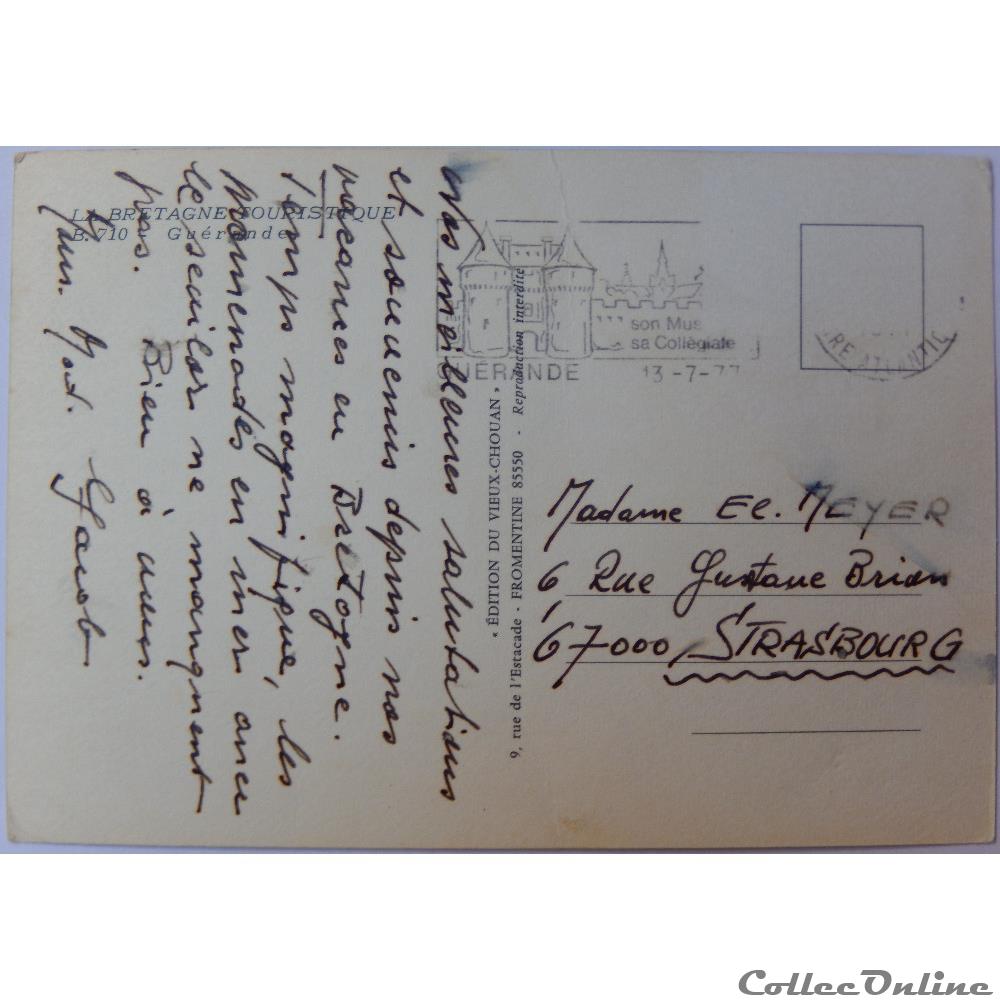 LA BRETAGNE TOURISTIQUE
B. 710 - Guérande
Nos meilleures salutations
et souvenirs depuis nos
vacances en Bretagne.
Temps magnifique, les
promenades en mer avec
le scailar ne manquent
pas. Bien à vous.
Jacob
« ÉDITION DU VIEUX-CHOUAN »
9, rue de l'Estacade - FROMENTINE 85550 - Reproduction interdite
son Mus
sa Collégiale
GUÉRANDE 13-7-77
RE ATLANTIC
Madame El. MEYER
6 Rue Gustave Brion
67000 STRASBOURG
CollecOnline